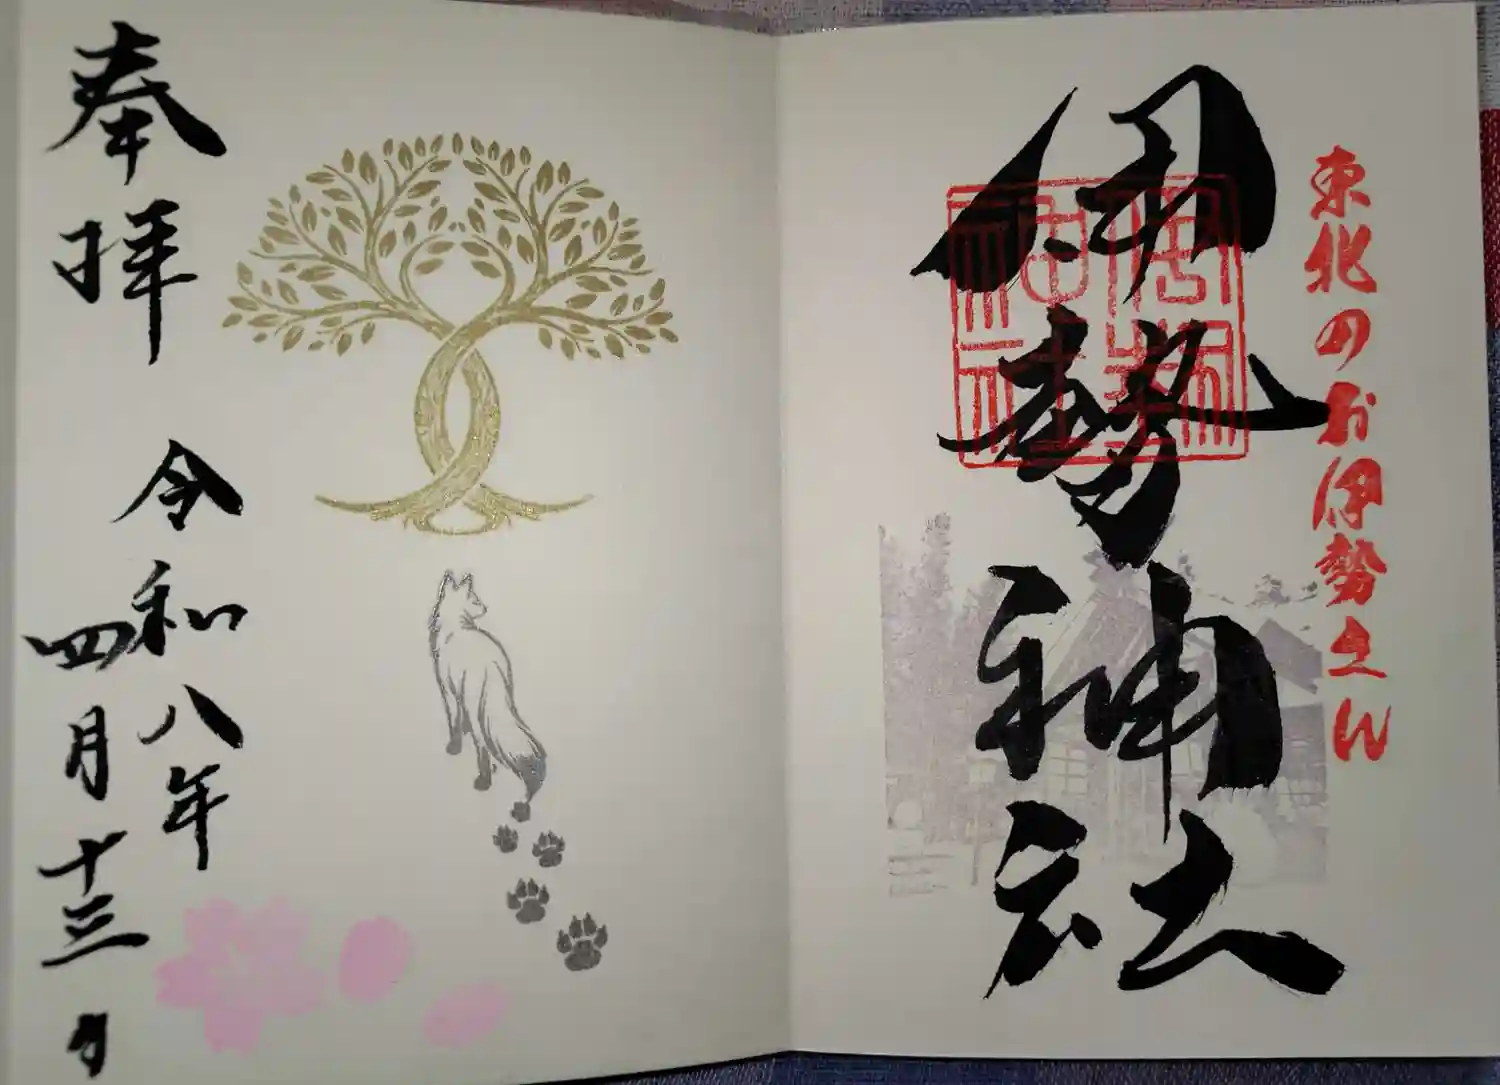 東北のお伊勢さん
伊勢神社
奉拝
令和八年
四月十三日